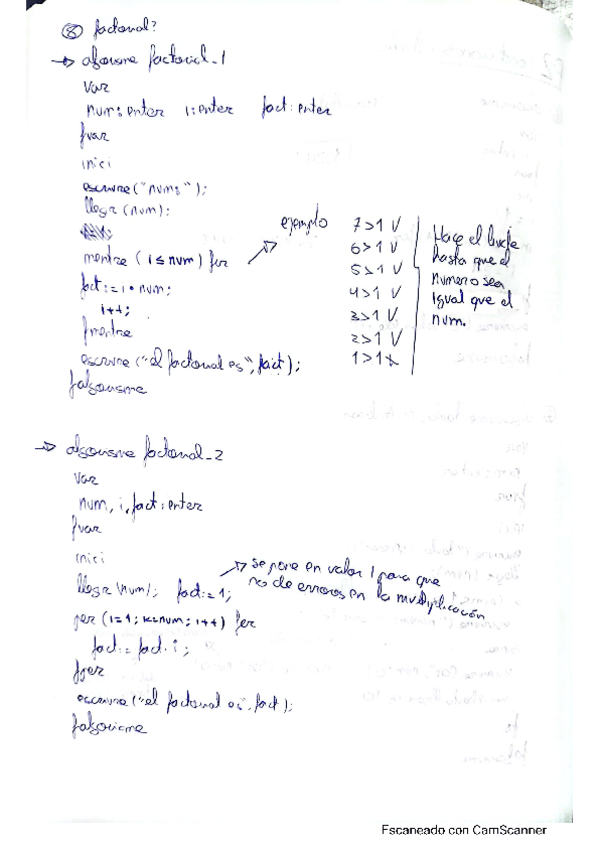 ⑧ factorial?
→ algorisme factorial_1
var
num: enter i: enter fact: enter
fvar
inici
escriure("num: ");
llegir (num);
mentre (i ≤ num) fer
fact:= i * num;
i++;
fmentre
escriure ("el factorial es", fact);
falgorisme
ejemplo
7>1 V
6>1 V
5>1 V
4>1 V
3>1 V
2>1 V
1>1 x
Hace el bucle
hasta que el
numero sea
igual que el
num.
→ algorisme factorial_2
var
num, i, fact: enter
fvar
inici
llegir (num); fact:= 1;
→ se pone en valor 1 para que
no de errores en la multiplicación
per (i=1; i<=num; i++) fer
fact:= fact · i;
fper
escriure ("el factorial es", fact);
falgorisme
Escaneado con CamScanner